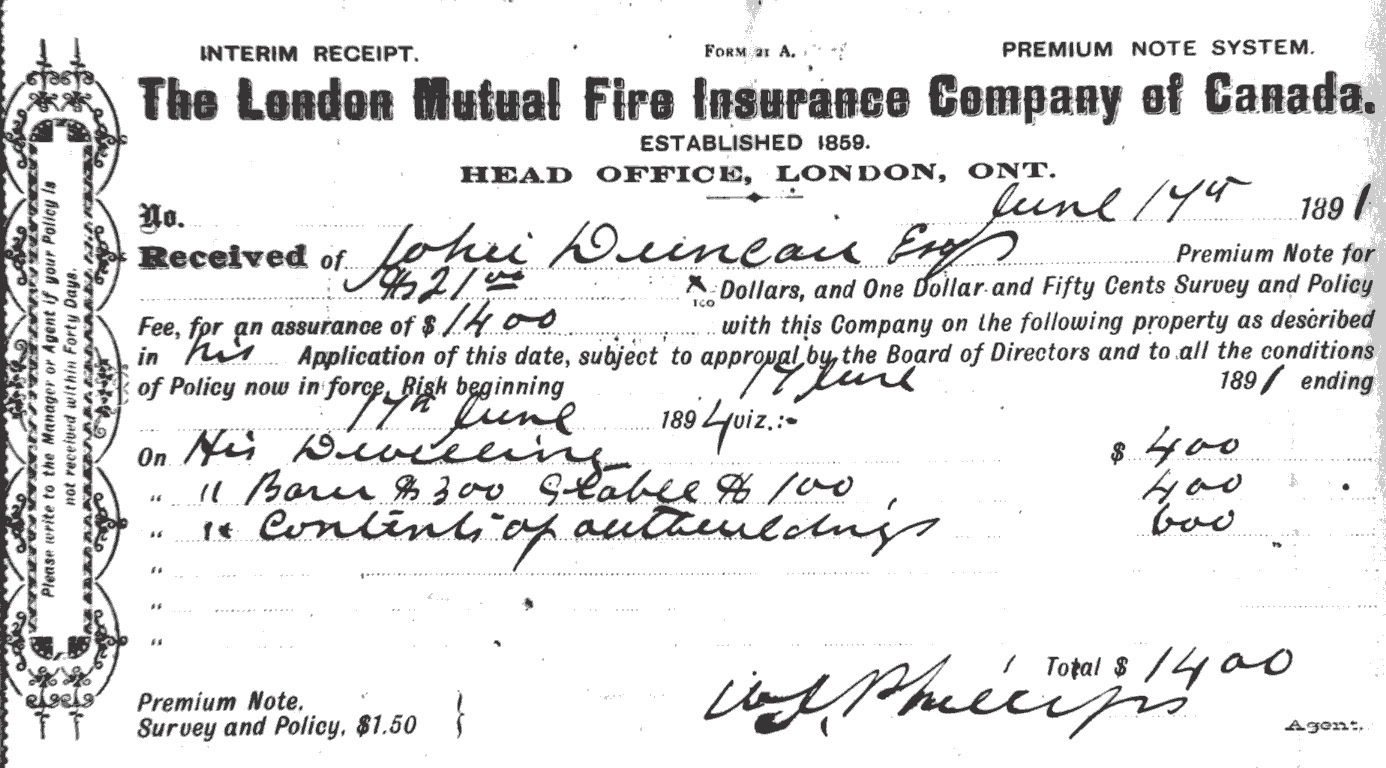 INTERIM RECEIPT. FORM 21 A. PREMIUM NOTE SYSTEM.
The London Mutual Fire Insurance Company of Canada.
ESTABLISHED 1859.
HEAD OFFICE, LONDON, ONT.
No. June 17th 1891
Received of John Duncan Esq Premium Note for
$21 00 x/100 Dollars, and One Dollar and Fifty Cents Survey and Policy
Fee, for an assurance of $ 1400 with this Company on the following property as described
in his Application of this date, subject to approval by the Board of Directors and to all the conditions
of Policy now in force, Risk beginning 17 June 1891 ending
17th June 1894 viz.:-
On His Dwelling $ 400
" " Barn $300 Stable $100, 400
" " Contents of outbuildings 600
"
"
"
Total $ 1400
Premium Note.
Survey and Policy, $1.50
Phillips Agent.
Please write to the Manager or Agent if your Policy is
not received within Forty Days.